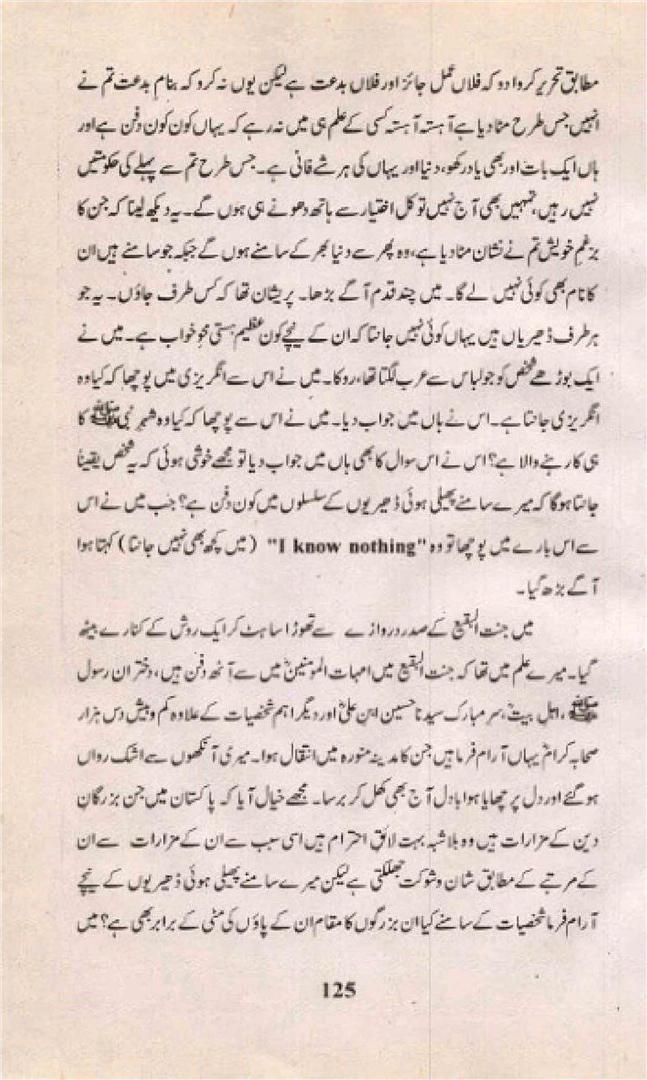 مطابق تحریر کروا دو کہ فلاں عمل جائز اور فلاں بدعت ہے لیکن یوں نہ کرو کہ بنامِ بدعت تم نے
انہیں جس طرح مٹا دیا ہے آہستہ آہستہ کسی کے علم ہی میں نہ رہے کہ یہاں کون کون دفن ہے اور
ہاں ایک بات اور بھی یاد رکھو، دنیا اور یہاں کی ہر شے فانی ہے۔ جس طرح تم سے پہلے کی حکومتیں
نہیں رہیں، تمہیں بھی آج نہیں تو کل اختیار سے ہاتھ دھونے ہی ہوں گے۔ یہ دیکھ لینا کہ جن کا
بزعمِ خویش تم نے نشان مٹا دیا ہے، وہ پھر سے دنیا بھر کے سامنے ہوں گے جبکہ جو سامنے ہیں ان
کا نام بھی کوئی نہیں لے گا۔ میں چند قدم آگے بڑھا۔ پریشان تھا کہ کس طرف جاؤں۔ یہ جو
ہر طرف ڈھیریاں ہیں یہاں کوئی نہیں جانتا کہ ان کے نیچے کون عظیم ہستی محوِ خواب ہے۔ میں نے
ایک بوڑھے شخص کو جو لباس سے عرب لگتا تھا، روکا۔ میں نے اس سے انگریزی میں پوچھا کہ کیا وہ
انگریزی جانتا ہے۔ اس نے ہاں میں جواب دیا۔ میں نے اس سے پوچھا کہ کیا وہ شہرِ نبی ﷺ کا
ہی کا رہنے والا ہے؟ اس نے اس سوال کا بھی ہاں میں جواب دیا تو مجھے خوشی ہوئی کہ یہ شخص یقیناً
جانتا ہوگا کہ میرے سامنے پھیلی ہوئی ڈھیریوں کے سلسلوں میں کون دفن ہے؟ جب میں نے اس
سے اس بارے میں پوچھا تو وہ "I know nothing" (میں کچھ بھی نہیں جانتا) کہتا ہوا
آگے بڑھ گیا۔
میں جنت البقیع کے صدر دروازے سے تھوڑا سا ہٹ کر ایک روش کے کنارے بیٹھ
گیا۔ میرے علم میں تھا کہ جنت البقیع میں امہات المومنینؓ میں سے آٹھ دفن ہیں، دخترانِ رسول
ﷺ، اہلِ بیتؓ، سر مبارک سیدنا حسین ابن علیؓ اور دیگر اہم شخصیات کے علاوہ کم و بیش دس ہزار
صحابہ کرامؓ یہاں آرام فرما ہیں جن کا مدینہ منورہ میں انتقال ہوا۔ میری آنکھوں سے اشک رواں
ہو گئے اور دل پر چھایا ہوا بادل آج بھی کھل کر برسا۔ مجھے خیال آیا کہ پاکستان میں جن بزرگانِ
دین کے مزارات ہیں وہ بلاشبہ بہت لائقِ احترام ہیں اسی سبب سے ان کے مزارات سے ان
کے مرتبے کے مطابق شان و شوکت جھلکتی ہے لیکن میرے سامنے پھیلی ہوئی ڈھیریوں کے نیچے
آرام فرما شخصیات کے سامنے کیا ان بزرگوں کا مقام ان کے پاؤں کی مٹی کے برابر بھی ہے؟ میں
125